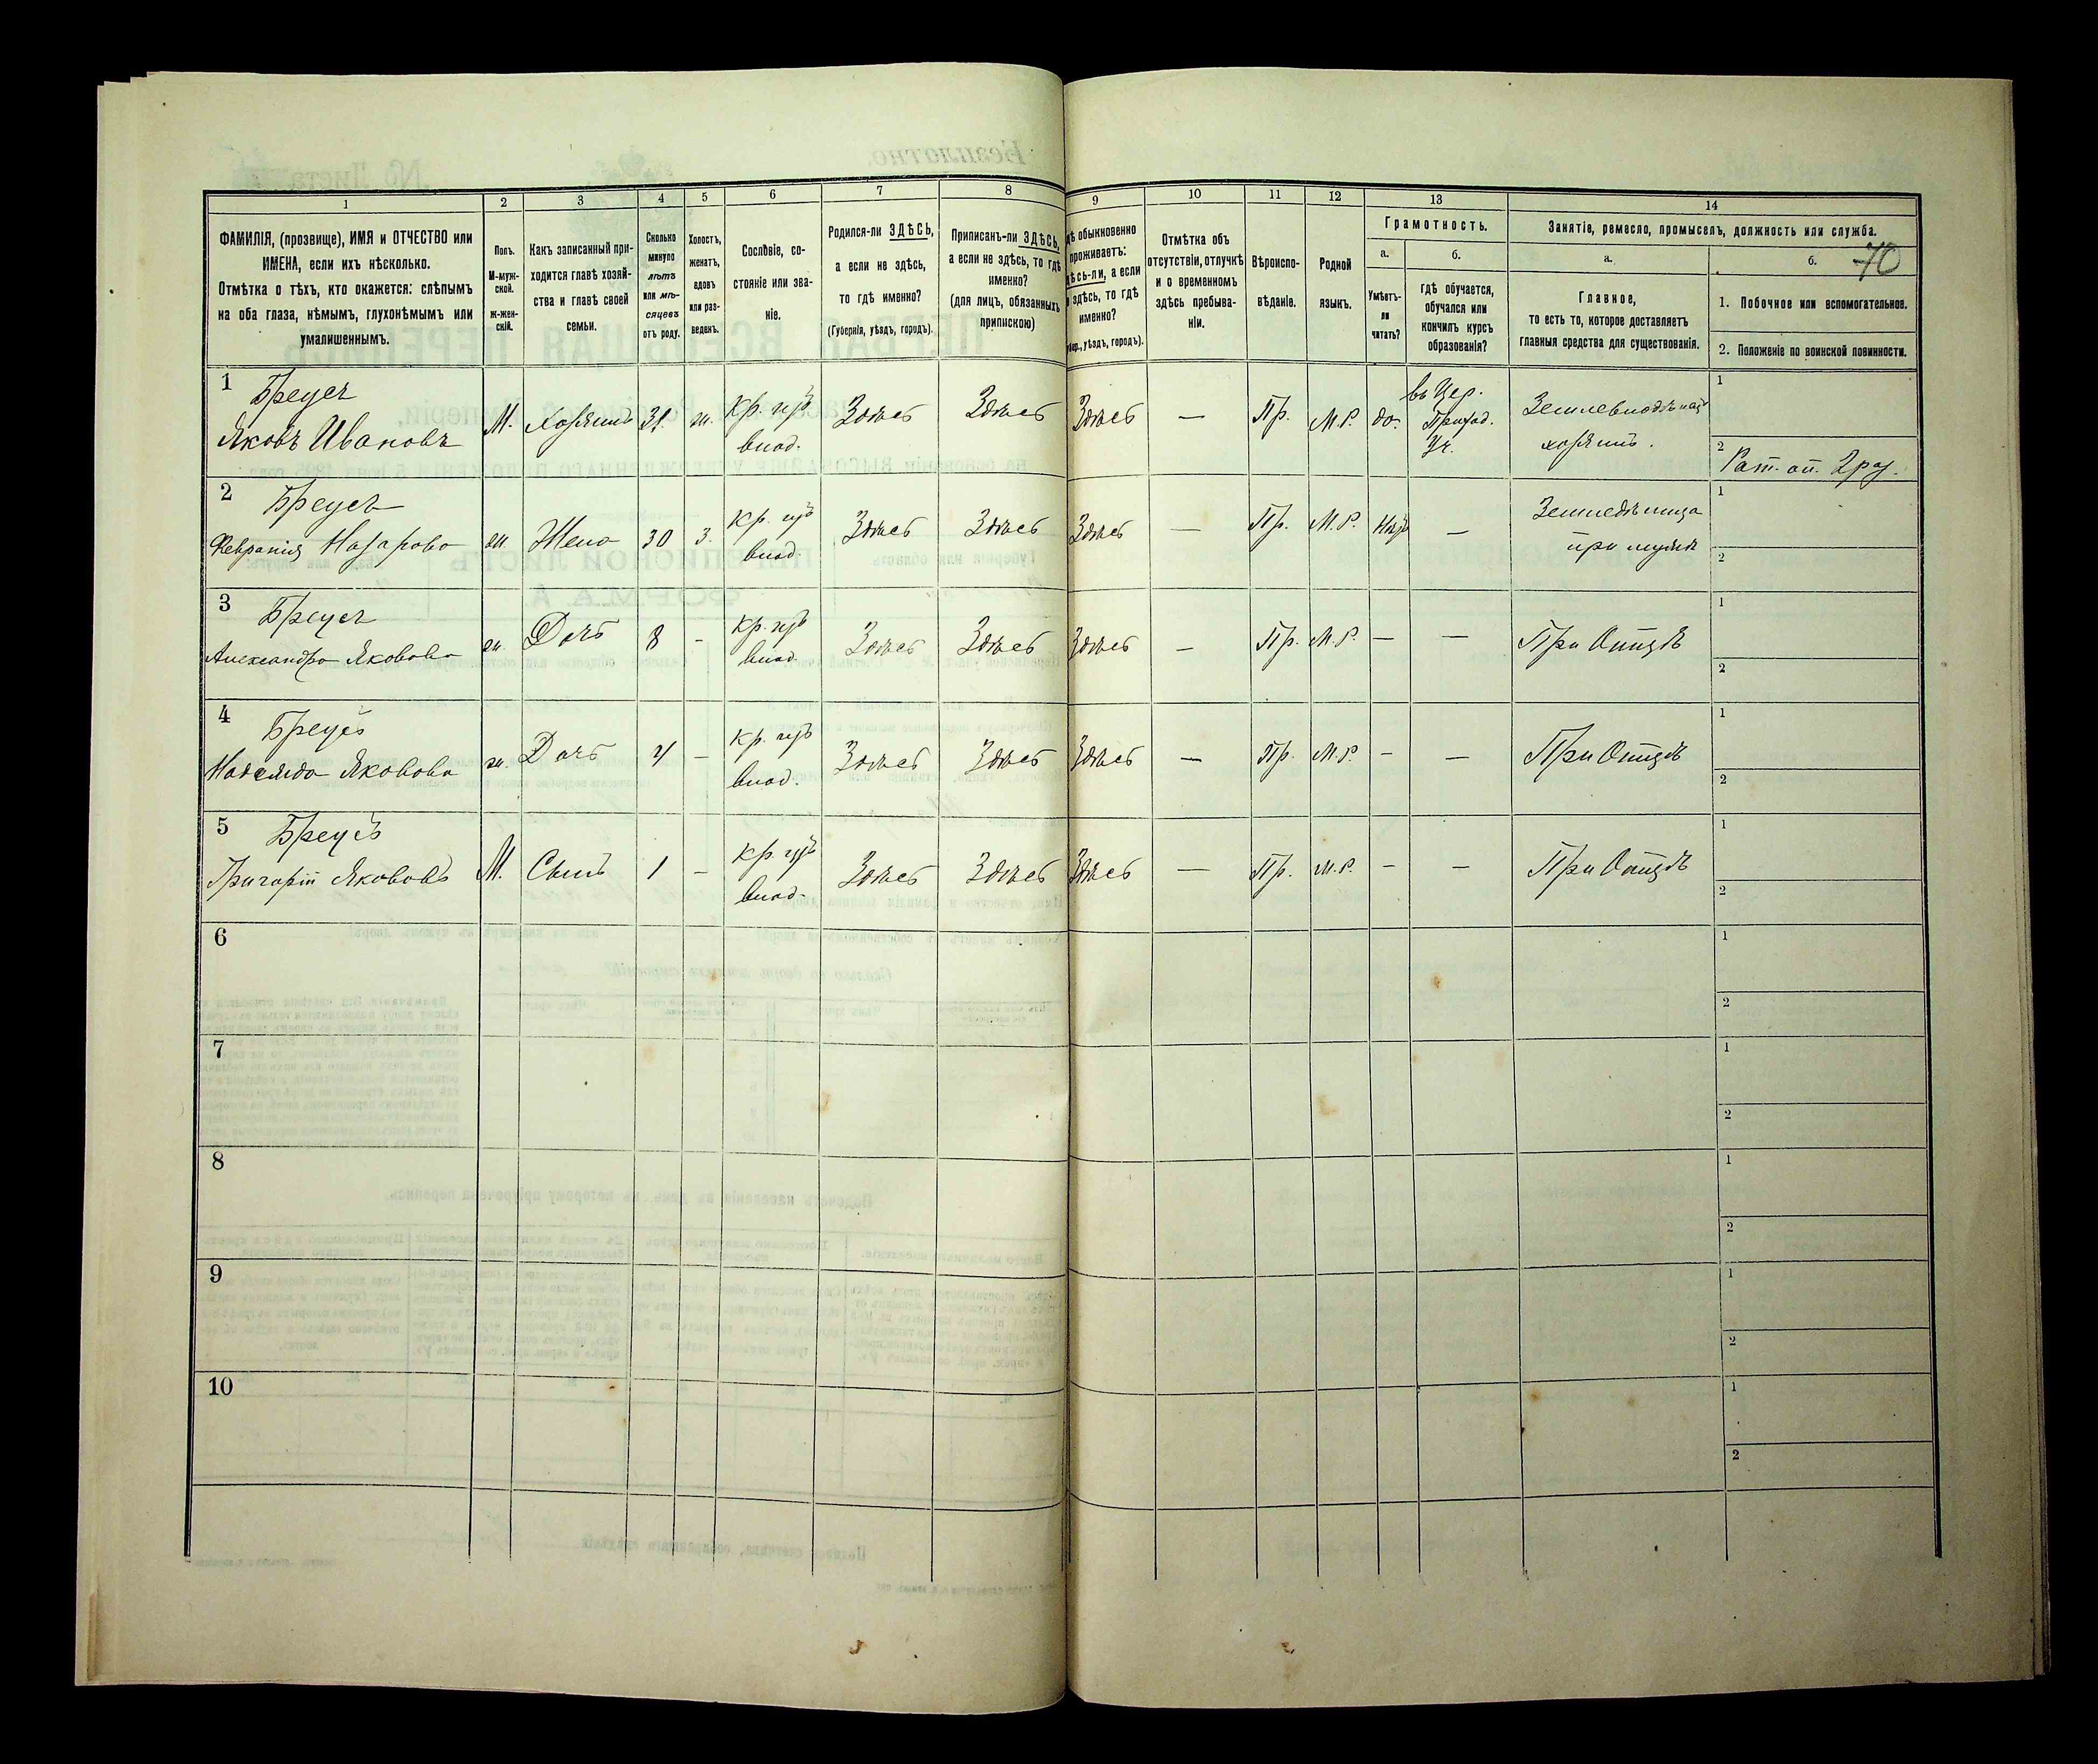 1
ФАМИЛІЯ, (прозвище), ИМЯ и ОТЧЕСТВО или
ИМЕНА, если ихъ нѣсколько.
Отмѣтка о тѣхъ, кто окажется: слѣпымъ
на оба глаза, нѣмымъ, глухонѣмымъ или
умалишеннымъ.
2
Полъ.
М-муж-
ской.
ж-жен-
скій.
3
Какъ записанный при-
ходится главѣ хозяй-
ства и главѣ своей
семьи.
4
Сколько
минуло
лѣтъ
или мѣ-
сяцевъ
отъ роду.
5
Холостъ,
женатъ,
вдовъ
или раз-
веденъ.
6
Сословіе, со-
стояніе или зва-
ніе.
7
Родился-ли ЗДѢСЬ,
а если не здѣсь,
то гдѣ именно?
(Губернія, уѣздъ, городъ).
8
Приписанъ-ли ЗДѢСЬ,
а если не здѣсь, то гдѣ
именно?
(для лицъ, обязанныхъ
припискою)
9
обыкновенно
проживаетъ:
а если
здѣсь, то гдѣ
именно?
уѣздъ, городъ).
10
Отмѣтка объ
отсутствіи, отлучкѣ
и о временномъ
здѣсь пребыва-
ніи.
11
Вѣроиспо-
вѣданіе.
12
Родной
языкъ.
13
Грамотность.
а.
Умѣетъ-
ли
читать?
б.
гдѣ обучается,
обучался или
кончилъ курсъ
образованія?
14
Занятіе, ремесло, промыселъ, должность или служба.
а.
Главное,
то есть то, которое доставляетъ
главныя средства для существованія.
б.
70
1. Побочное или вспомогательное.
2. Положеніе по воинской повинности.
1 Бреусъ
Яковъ Ивановъ
М. Хозяинъ 31 ж. кр. изъ
влад. Здѣсь Здѣсь Здѣсь — Пр. М.Р. да
въ Цер.
Приход.
Уч.
Землевладѣлец
хозяинъ.
1
2 Рат. оп. 2 раз.
2 Бреусъ
Февронія Назарова
ж. Жена 30 З. кр. изъ
влад. Здѣсь Здѣсь Здѣсь — Пр. М.Р. Нѣтъ —
Земледѣлица
при мужѣ
1
2
3 Бреусъ
Александра Яковова
ж. Дочь 8 - кр. изъ
влад. Здѣсь Здѣсь Здѣсь — Пр. М.Р. — — При Отцѣ
1
2
4 Бреусъ
Надежда Яковова
ж. Дочь 4 - кр. изъ
влад. Здѣсь Здѣсь Здѣсь — Пр. М.Р. - — При Отцѣ
1
2
5 Бреусъ
Григорій Якововъ
М. Сынъ 1 - кр. изъ
влад. Здѣсь Здѣсь Здѣсь — Пр. М.Р. - — При Отцѣ
1
2
6
1
2
7
1
2
8
1
2
9
1
2
10
1
2